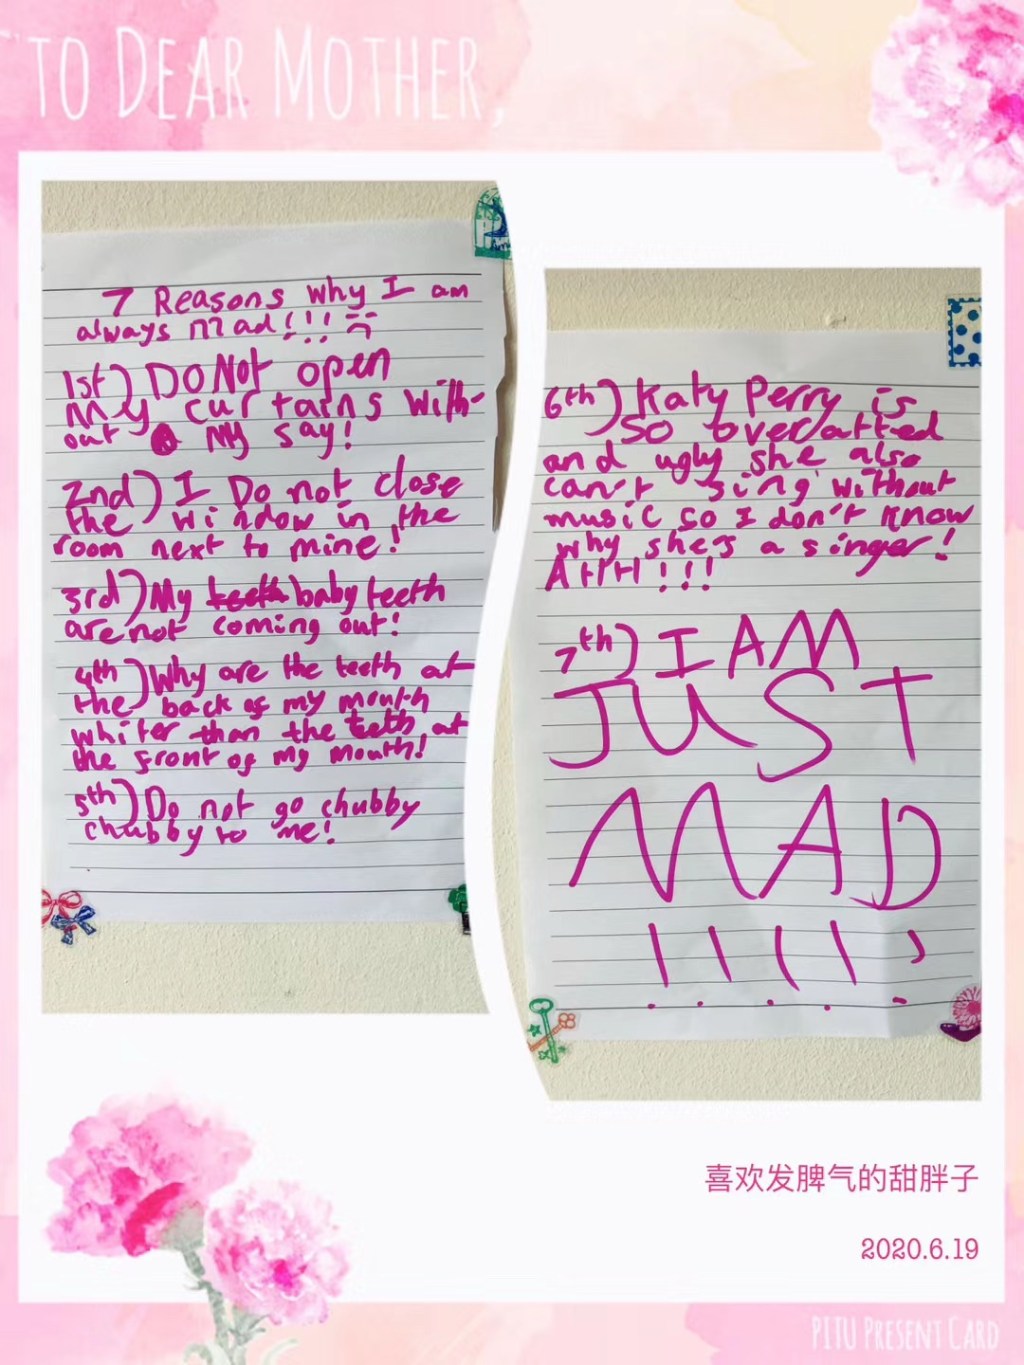 TO DEAR MOTHER,
7 Reasons why I am
always Mad!!!
1st) DO Not open
my curtains with-
out my say!
2nd) I Do not close
the window in the
room next to mine!
3rd) My teeth baby teeth
are not coming out!
4th) Why are the teeth at
the back of my mouth
whiter than the teeth at
the front of my mouth!
5th) Do not go chubby
chubby to me!
6th) Katy Perry is
SO overatted
and ugly she also
can't sing without
music so I don't know
why she's a singer!
AHH!!!
7th) I AM
JUST
MAD
!!!!!
喜欢发脾气的甜胖子
2020.6.19
PITU PRESENT CARD